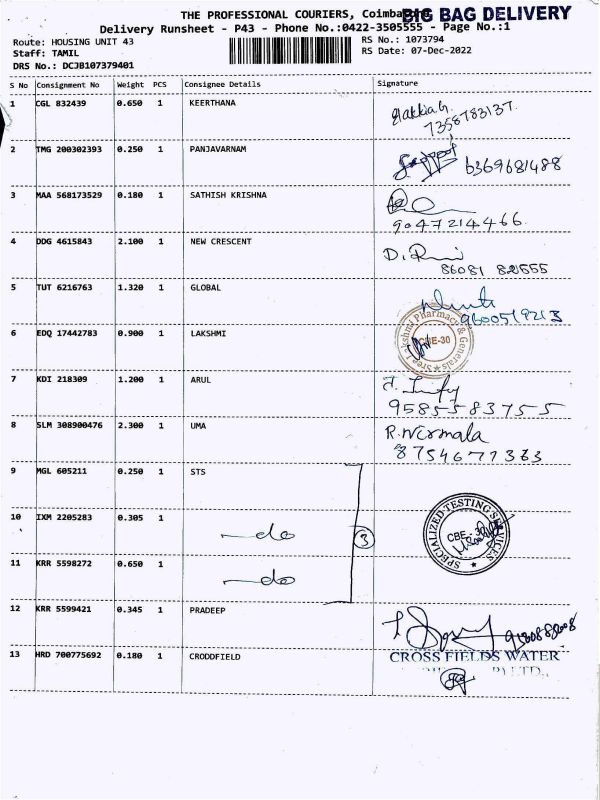 THE PROFESSIONAL COURIERS, Coimbatore
BIG BAG DELIVERY
Delivery Runsheet - P43 - Phone No.:0422-3505555 - Page No.:1
Route: HOUSING UNIT 43
RS No.: 1073794
Staff: TAMIL
RS Date: 07-Dec-2022
DRS No.: DCJB107379401
S No Consignment No Weight PCS Consignee Details Signature
1 CGL 832439 0.650 1 KEERTHANA
7358783137
2 TMG 200302393 0.250 1 PANJAVARNAM
6369681488
3 MAA 568173529 0.180 1 SATHISH KRISHNA
9047214466
4 DDG 4615843 2.100 1 NEW CRESCENT
5 TUT 6216763 1.320 1 GLOBAL
9600519213
6 EDQ 17442783 0.900 1 LAKSHMI
Sree Lakshmi Pharmacy & Generals
CBE-30
7 KDI 218309 1.200 1 ARUL
9585583755
8 SLM 308900476 2.300 1 UMA R.Nirmala
8754677363
9 MGL 605211 0.250 1 STS
SPECIALIZED TESTING SERVICES
CBE - 30
10 IXM 2205283 0.305 1 do
3
11 KRR 5598272 0.650 1 do
12 KRR 5599421 0.345 1 PRADEEP
13 HRD 700775692 0.180 1 CRODDFIELD CROSS FIELDS WATER